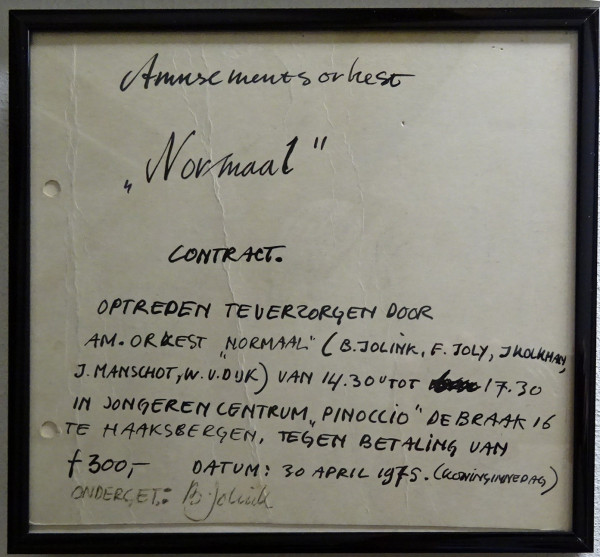 Amusementsorkest
„Normaal"
CONTRACT.
OPTREDEN TE VERZORGEN DOOR
AM. ORKEST „NORMAAL" (B. JOLINK, F. JOLY, J KOLKMAN,
J. MANSCHOT, W. V. DIJK) VAN 14.30 U TOT 17.30
IN JONGEREN CENTRUM „PINOCCIO" DE BRAAK 16
TE HAAKSBERGEN, TEGEN BETALING VAN
f 300,- DATUM: 30 APRIL 1975. (KONINGINNEDAG)
ONDERGET.: B. Jolink